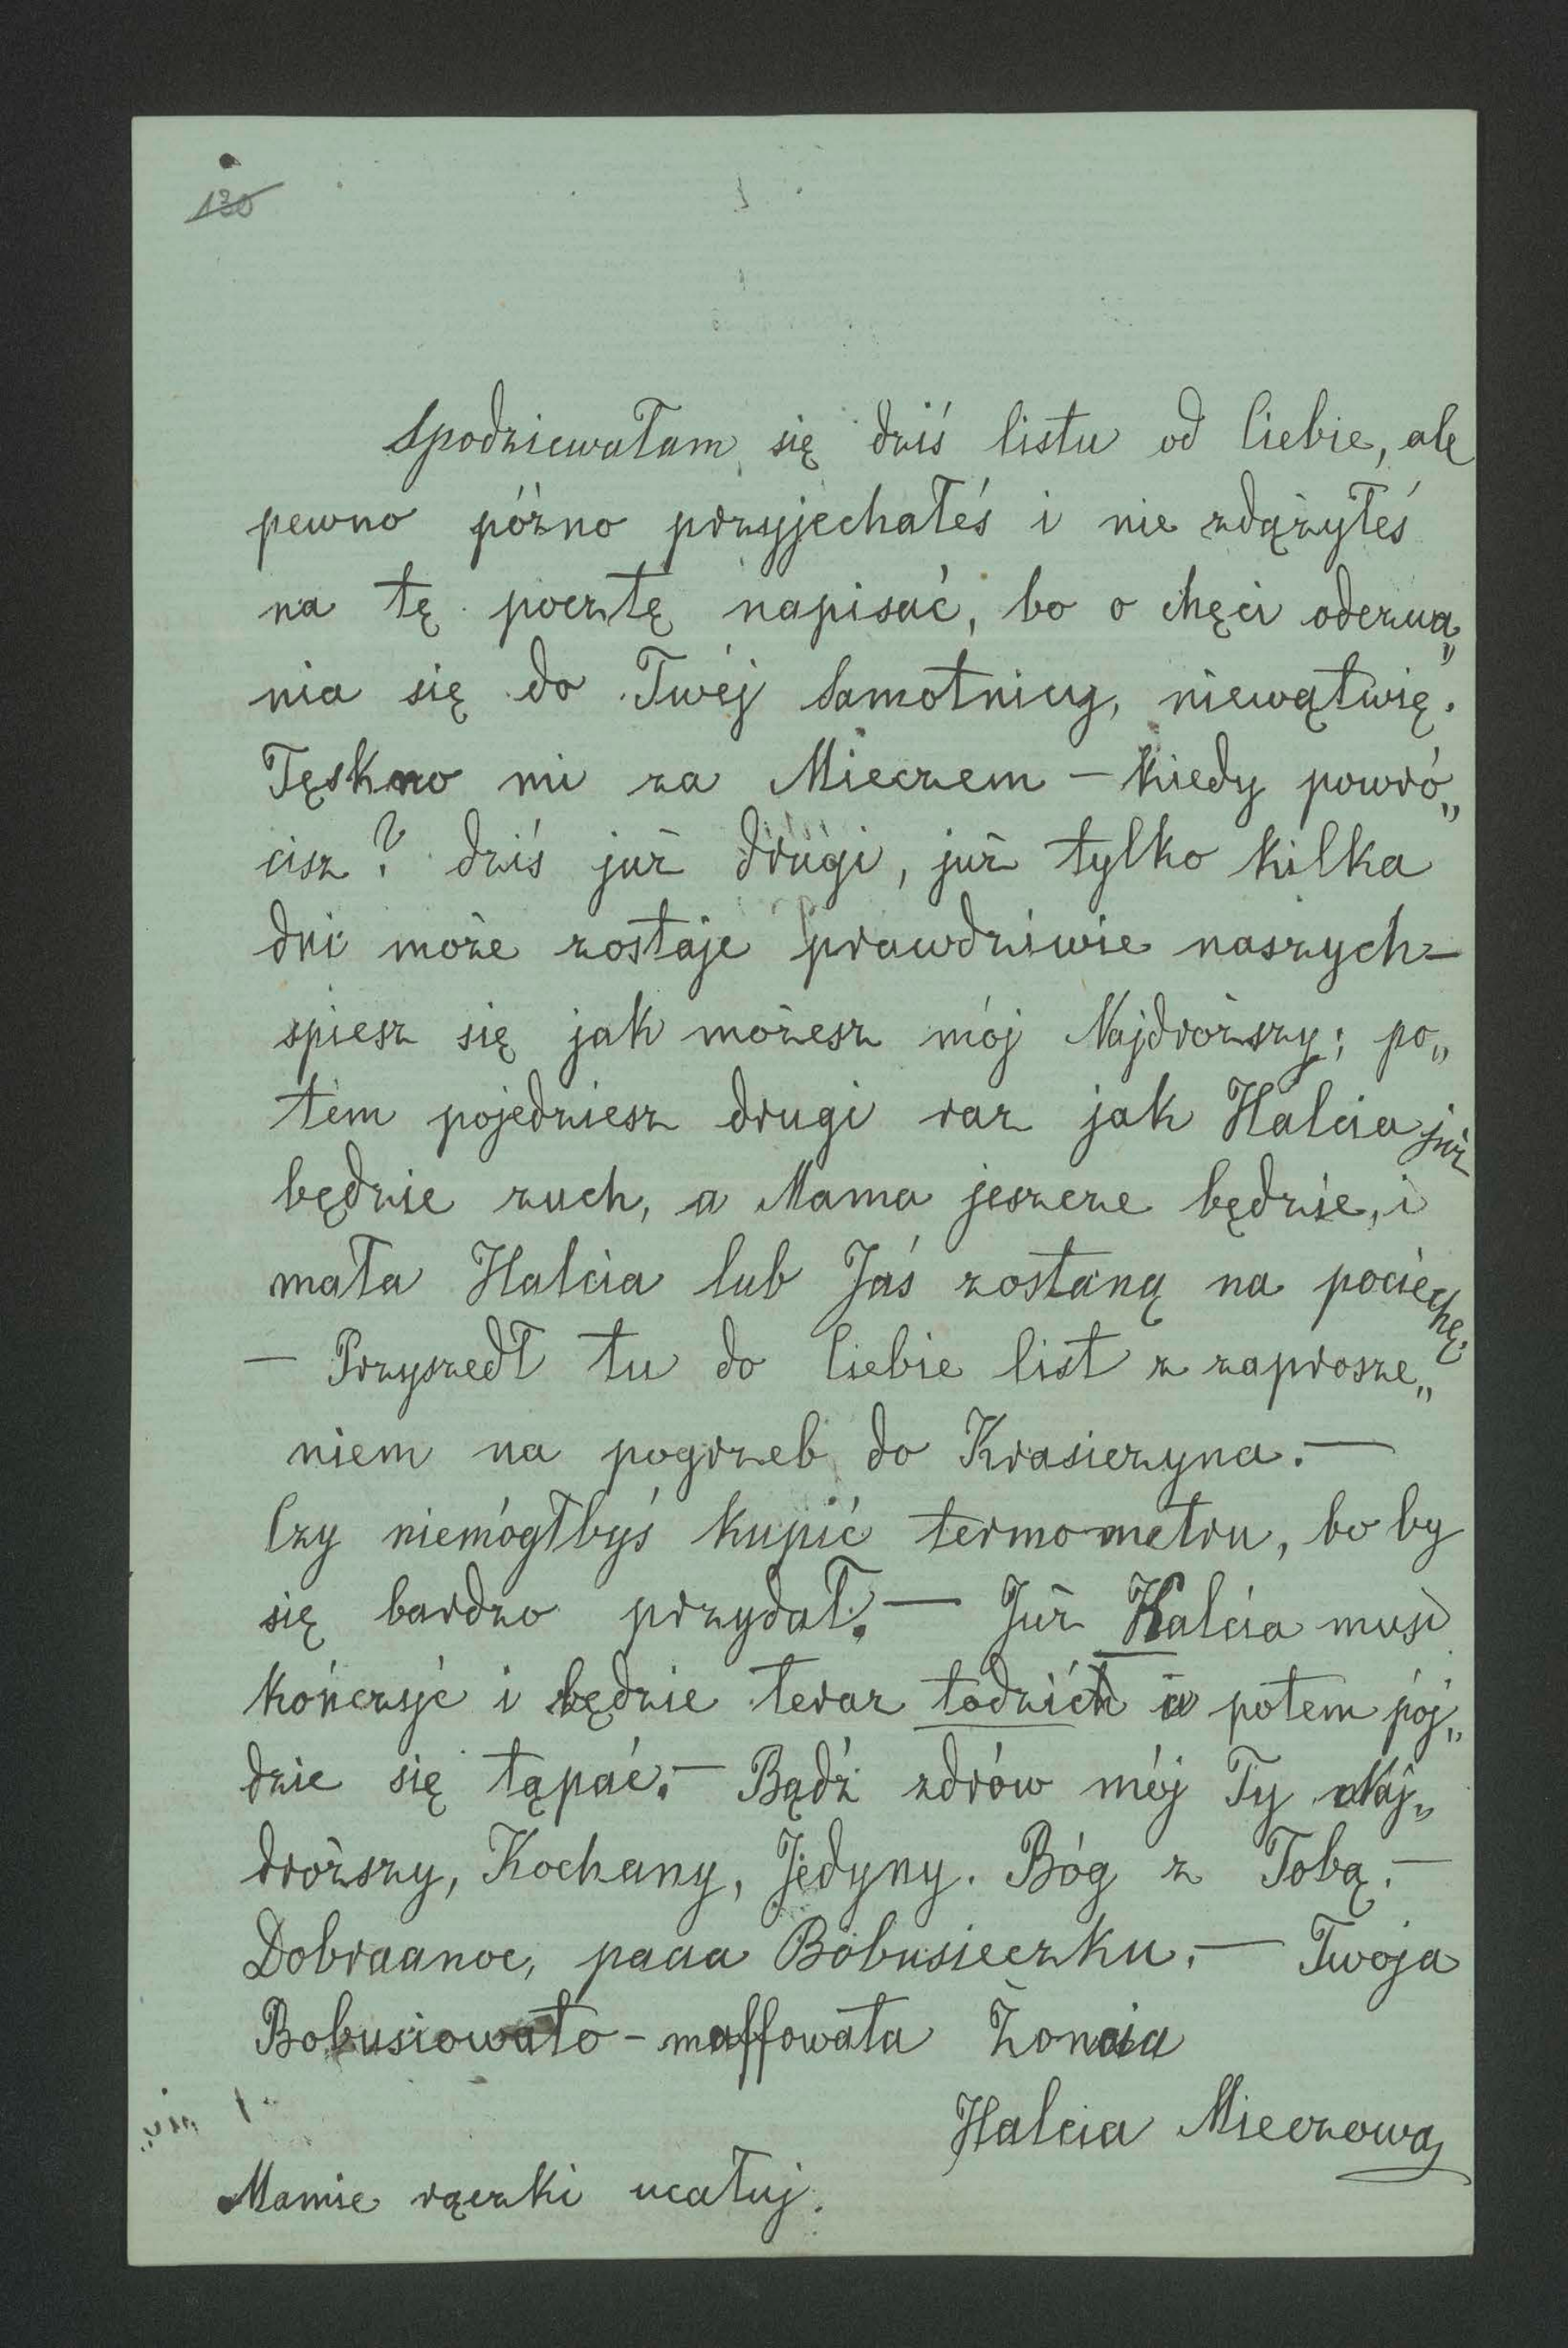 130
Spodziewałam się dziś listu od Ciebie, ale
pewno późno przyjechałeś i nie zdążyłeś
na tę pocztę napisać, bo o chęci odezwa„
nia się do Twéj Samotnicy, niewątwię.
Tęskno mi za Mieczem – kiedy powró„
cisz? dziś już drugi, już tylko kilka
dni może zostaje prawdziwie naszych –
spiesz się jak możesz mój Najdroższy; po„
tem pojedziesz drugi raz jak Halcia już
będzie zuch, a Mama jeszcze będzie, i
mała Halcia lub Jaś zostaną na pociechę.
– Przyszedł tu do Ciebie list z zaprosze„
niem na pogrzeb do Krasiczyna. –
Czy niemógłbyś kupić termometru, bo by
się bardzo przydał. – Już Halcia musi
kończyć i będzie teraz łodzić a potem pój„
dzie się łąpać. – Bądź zdrów mój Ty Naj„
droższy, Kochany, Jedyny. Bóg z Tobą. –
Dobraanoc, paaa Bobusieczku. – Twoja
Bobusiowato-maffowata Żoncia
Halcia Mieczowa
Mamie rączki ucałuj.